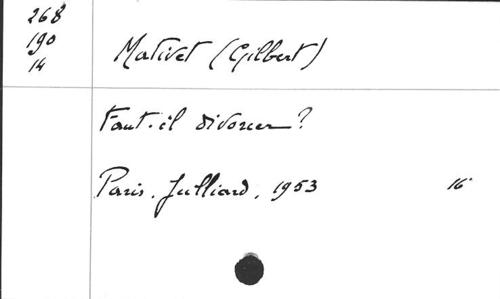 268
190
14
Mativet (Gilbert)
Faut-il divorcer ?
Paris. Julliard, 1953 16°